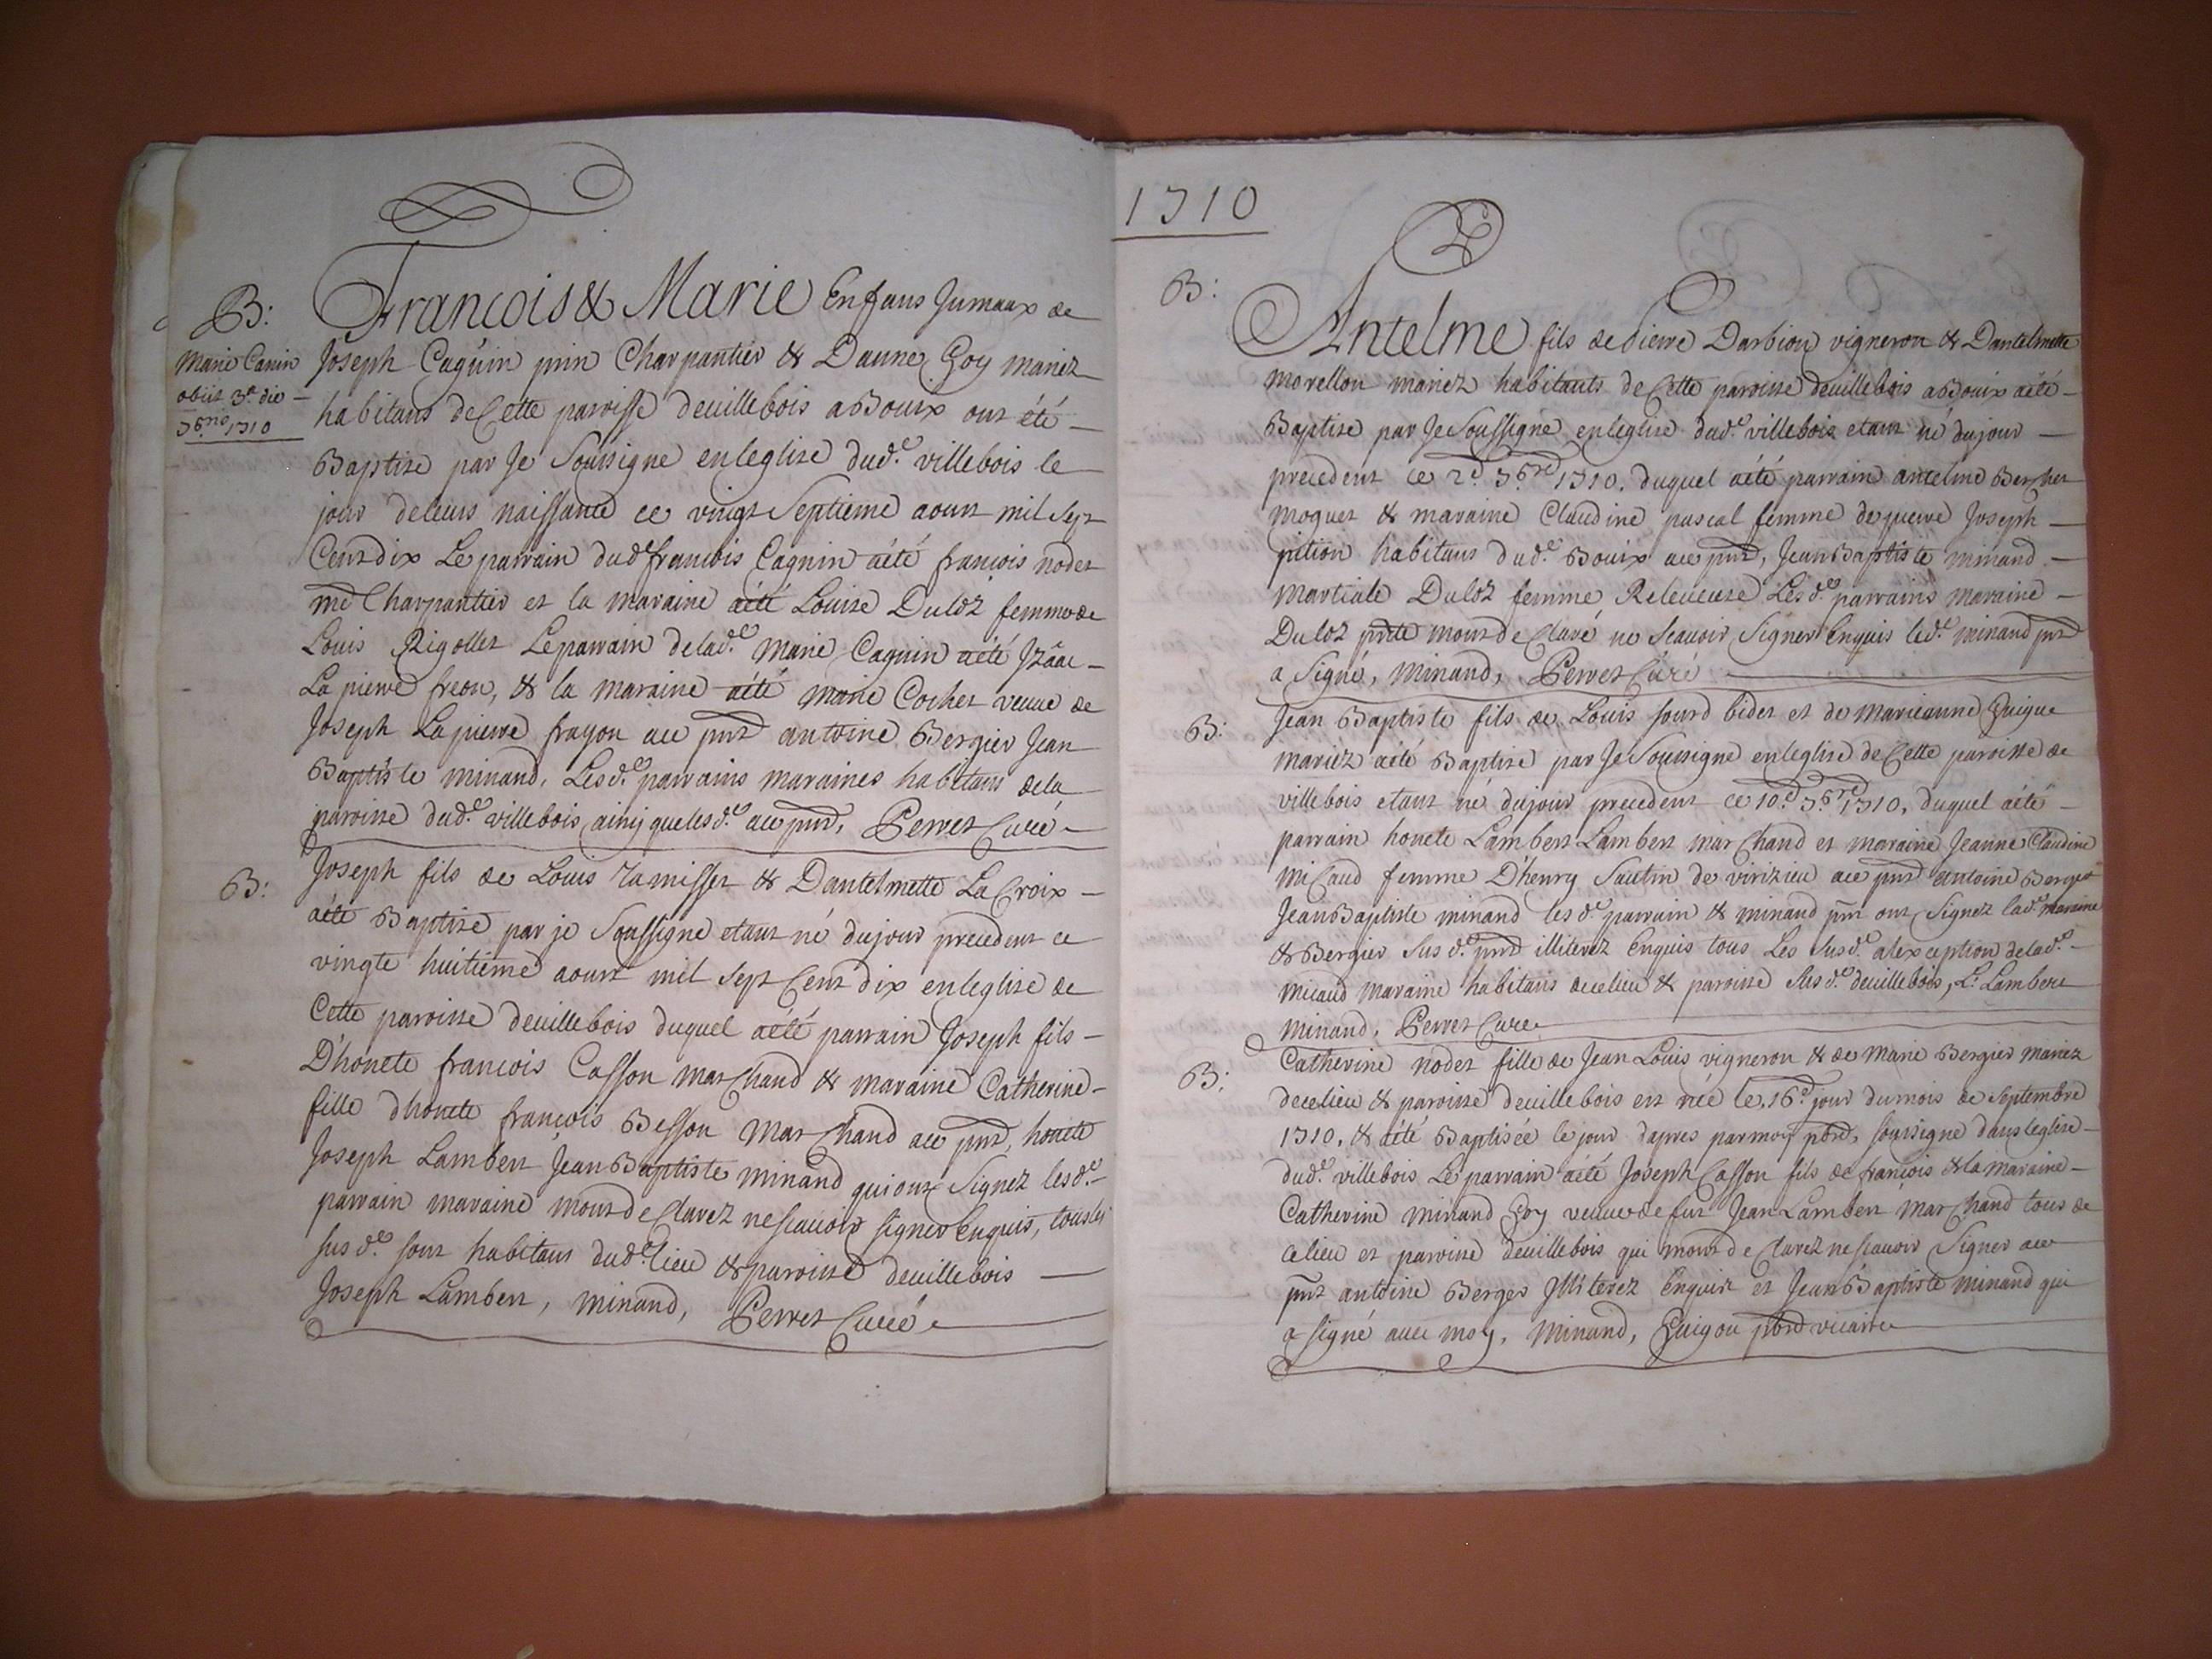 B:
Marie Canin
obiit 3e die
7bris 1710
Francois & Marie Enfans Jumaux de
Joseph Cagnin Charpantier & Danne Goy mariez
habitans de Cette paroisse deuillebois a Bouix ont été
Baptize par Je Soussigne en leglise dud.e villebois le
jour deleurs naissance ce vingt Septieme aoust mil Sept
Cent dix Le parrain dud.e francois Cagnin aété francois nodet
me Charpantier et la maraine aété Louise Duloz femme de
Louis Rigollet Le parrain delad.e Marie Cagnin aété Jzâac
La pierre freon, & la maraine aété marie Cochet veuue de
Joseph La pierre frayon au pnt antoine Bergier Jean
Baptiste minand, Lesd.es parrains maraines habitans dela
paroisse dud.e villebois ainsj que lesd.es au pnt, Perret Curé
B:
Joseph fils de Louis & Dantelmette La Croix
aété Baptize par je Soussigne etant né dujour precedent ce
vingte huitieme aoust mil Sept Cent dix en leglise de
Cette paroisse deuillebois duquel aété parrain Joseph fils
D'honete francois Casson marchand & maraine Catherine
fille dhonete francois Besson Marchand au pnt, honete
Joseph Lambert Jean Baptiste minand qui ont Signez lesd.es
parrain maraine mont de Clarez ne scauoir signer Enquis, tous les
sus d.es sont habitans dud.e lieu & paroisse deuillebois
Joseph Lambert, minand, Perret Curé
1710
B:
Antelme fils de Pierre Darbion vigneron & Dantelmette
morellon mariez habitants de Cette paroisse deuillebois a Bouix aété
Baptize par Je Soussigné en leglise dud.e villebois etant né dujour
precedent ce 2e 7bre 1710. duquel aété parrain antelme Berchet
moquet & maraine Claudine pascal femme de pierre Joseph
pition habitans dud.e Bouix au pnt, Jean Baptiste minand
martiale Duloz femme Releueuse Lesd.es parrains maraine
Duloz pnte mont de Claré ne Scauoir Signer Enquis led.e minand pnt
a Signé, Minand, Perret Curé
B:
Jean Baptiste fils de Louis sourd bidet et de marieanne Guigue
mariez aété Baptize par Je Soussigne en leglise de Cette paroisse de
villebois etant né dujour precedent ce 10e 7bre 1710, duquel aété
parrain honete Lambert Lambert marchand et maraine Jeanne Claudine
miCaud femme D'henry Sautin de virizieu au pnt antoine Berger
Jean Baptiste minand lesd.es parrain & minand pnt ont Signez lad.e maraine
& Bergier Sus d.e pnt illiterez Enquis tous Les Susd.es alexception delad.e
micaud maraine habitans decelieu & paroisse Susd.e deuillebois, L. Lambert
minand, Perret Curé
B:
Catherine nodet fille de Jean Louis vigneron & de Marie Bergier mariez
decelieu & paroisse deuillebois est née le 16e jour dumois de Septembre
1710, & aété Baptisée le jour d'apres par moy pbre, soussigné dans leglise
dud.e villebois Le parrain aété Joseph Casson fils de francois & la maraine
Catherine minand Goy veuue de fut Jean Lambert marchand tous de
celieu et paroisse deuillebois qui mont de Clarez ne scauoir Signer au
pnt antoine Berger Jlliterez Enquis et Jean Baptiste minand qui
a signé auec moy, Minand, Guigou pbre vicaire